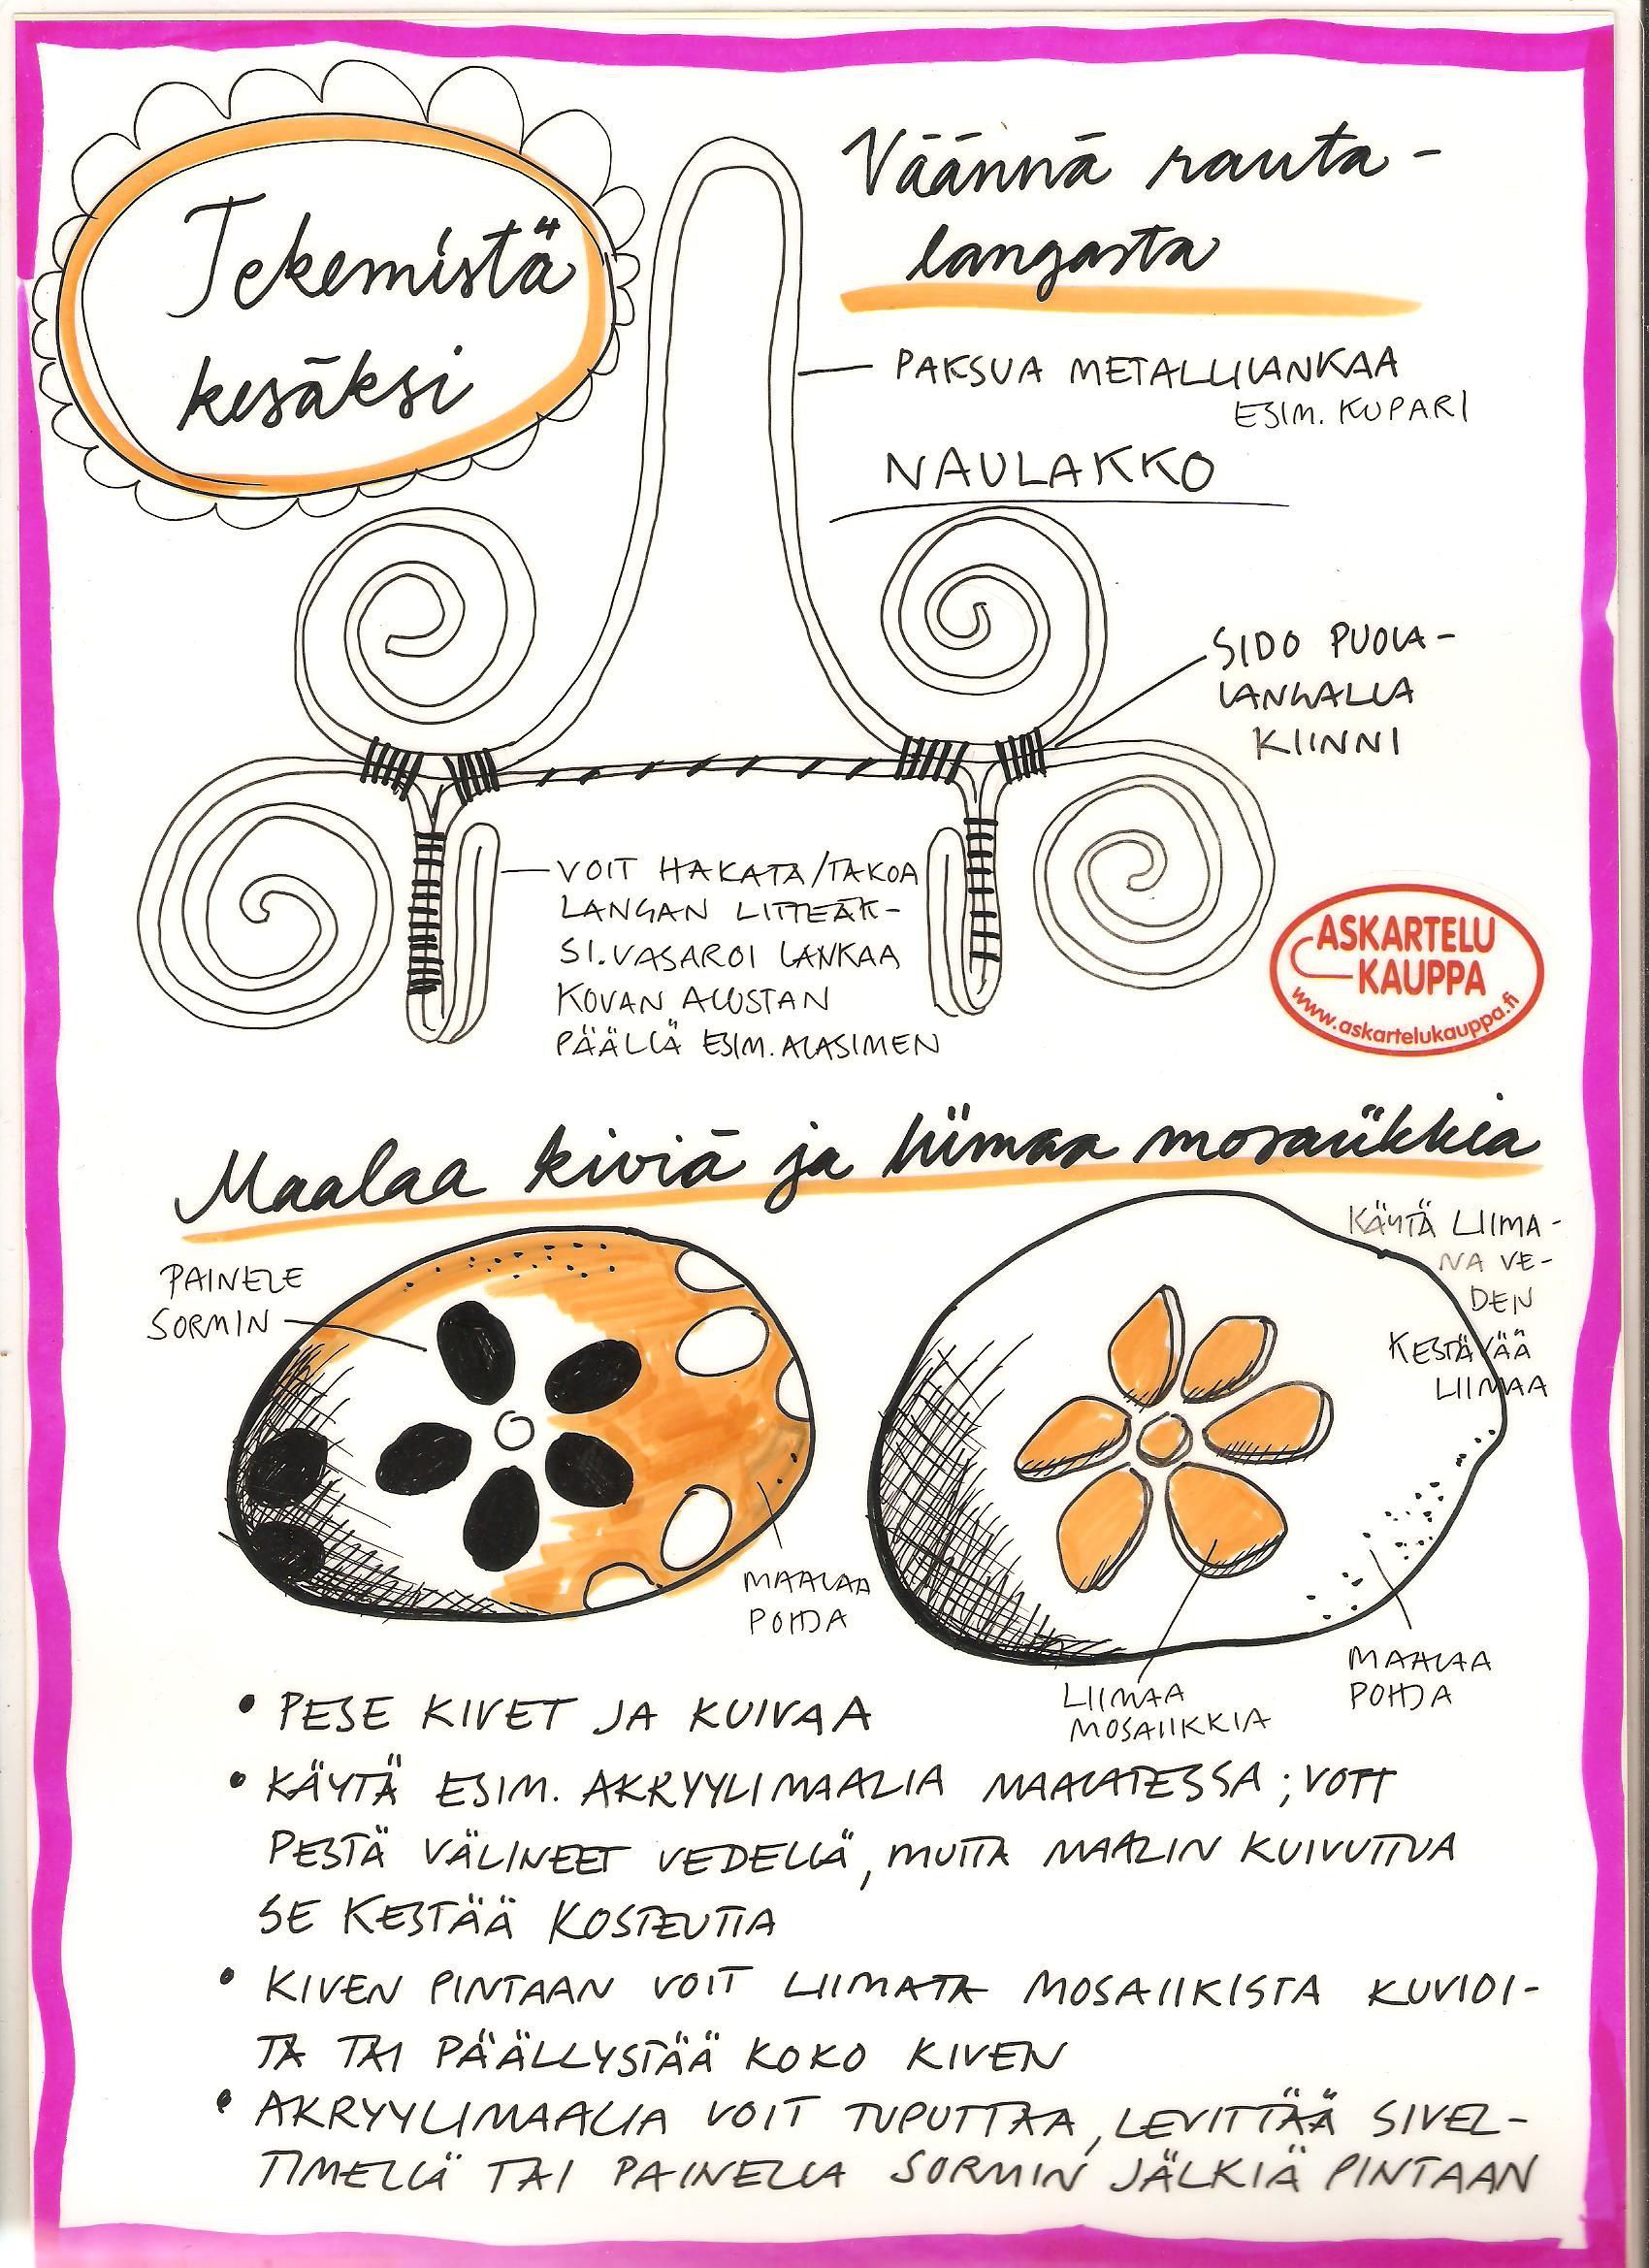 Tekemistä
kesäksi
Väännä rauta-
langasta
PAKSUA METALLILANKAA
ESIM. KUPARI
NAULAKKO
SIDO PUOLA-
LANGALLA
KIINNI
VOIT HAKATA/TAKOA
LANGAN LITTEÄK-
SI. VASAROI LANKAA
KOVAN ALUSTAN
PÄÄLLÄ ESIM. ALASIMEN
ASKARTELU
KAUPPA
www.askartelukauppa.fi
Maalaa kiviä ja liimaa mosaiikkia
PAINELE
SORMIN
KÄYTÄ LIIMA-
NA VE-
DEN
KESTÄVÄÄ
LIIMAA
MAALAA
POHJA
LIIMAA
MOSAIIKKIA
MAALAA
POHJA
• PESE KIVET JA KUIVAA
• KÄYTÄ ESIM. AKRYYLIMAALIA MAALATESSA; VOIT
PESTÄ VÄLINEET VEDELLÄ, MUTTA MAALIN KUIVUTTUA
SE KESTÄÄ KOSTEUTTA
• KIVEN PINTAAN VOIT LIIMATA MOSAIIKISTA KUVIOI-
TA TAI PÄÄLLYSTÄÄ KOKO KIVEN
• AKRYYLIMAALIA VOIT TUPUTTAA, LEVITTÄÄ SIVEL-
TIMELLÄ TAI PAINELLA SORMIN JÄLKIÄ PINTAAN